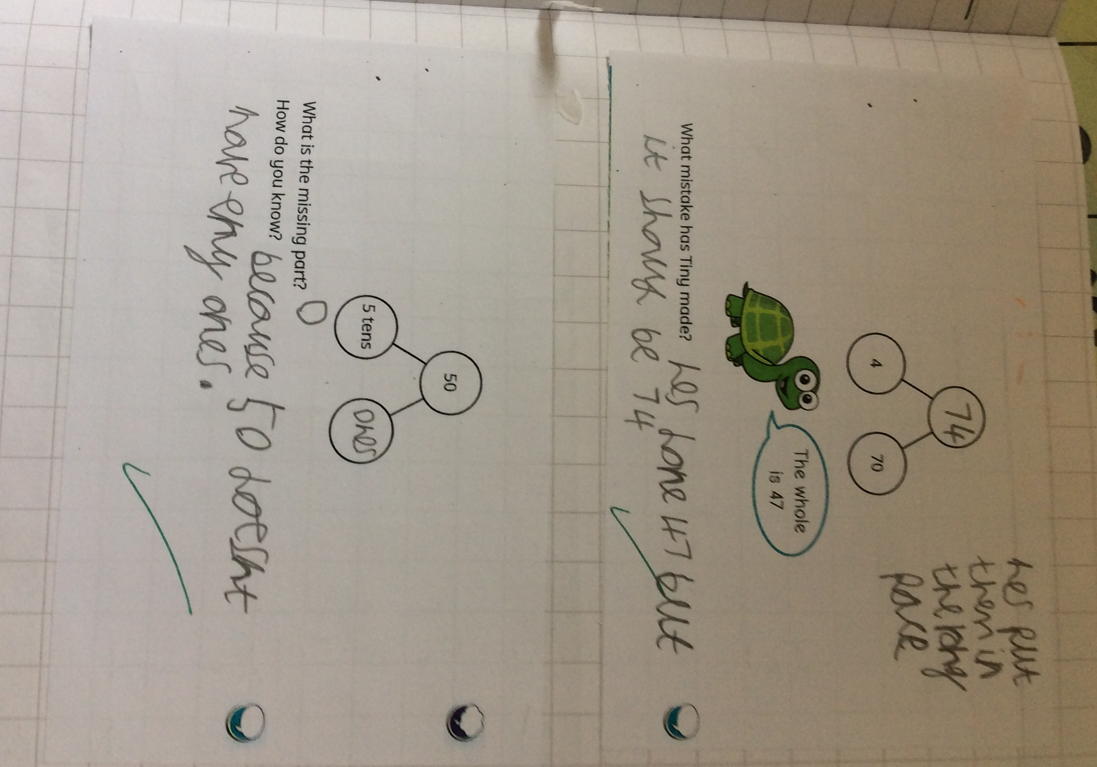 74
hes put
them in
the rong
place
4
70
The whole
is 47
What mistake has Tiny made? hes done 47 but
it shoud be 74
50
5 tens
ones
What is the missing part? 0
How do you know? because 50 doesnt
have eny ones.